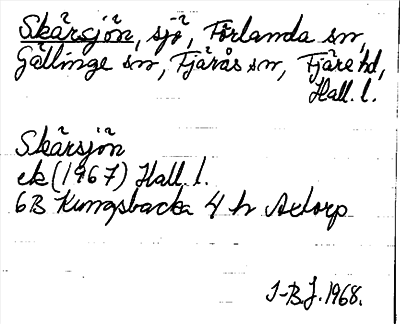 Skärsjön, sjö, Förlanda sn,
Gällinge sn, Fjärås sn, Fjäre hd,
Hall. l.
Skärsjön
ek (1967) Hall. l.
6B Kungsbacka 4 h Axtorp
J-B.J. 1968.